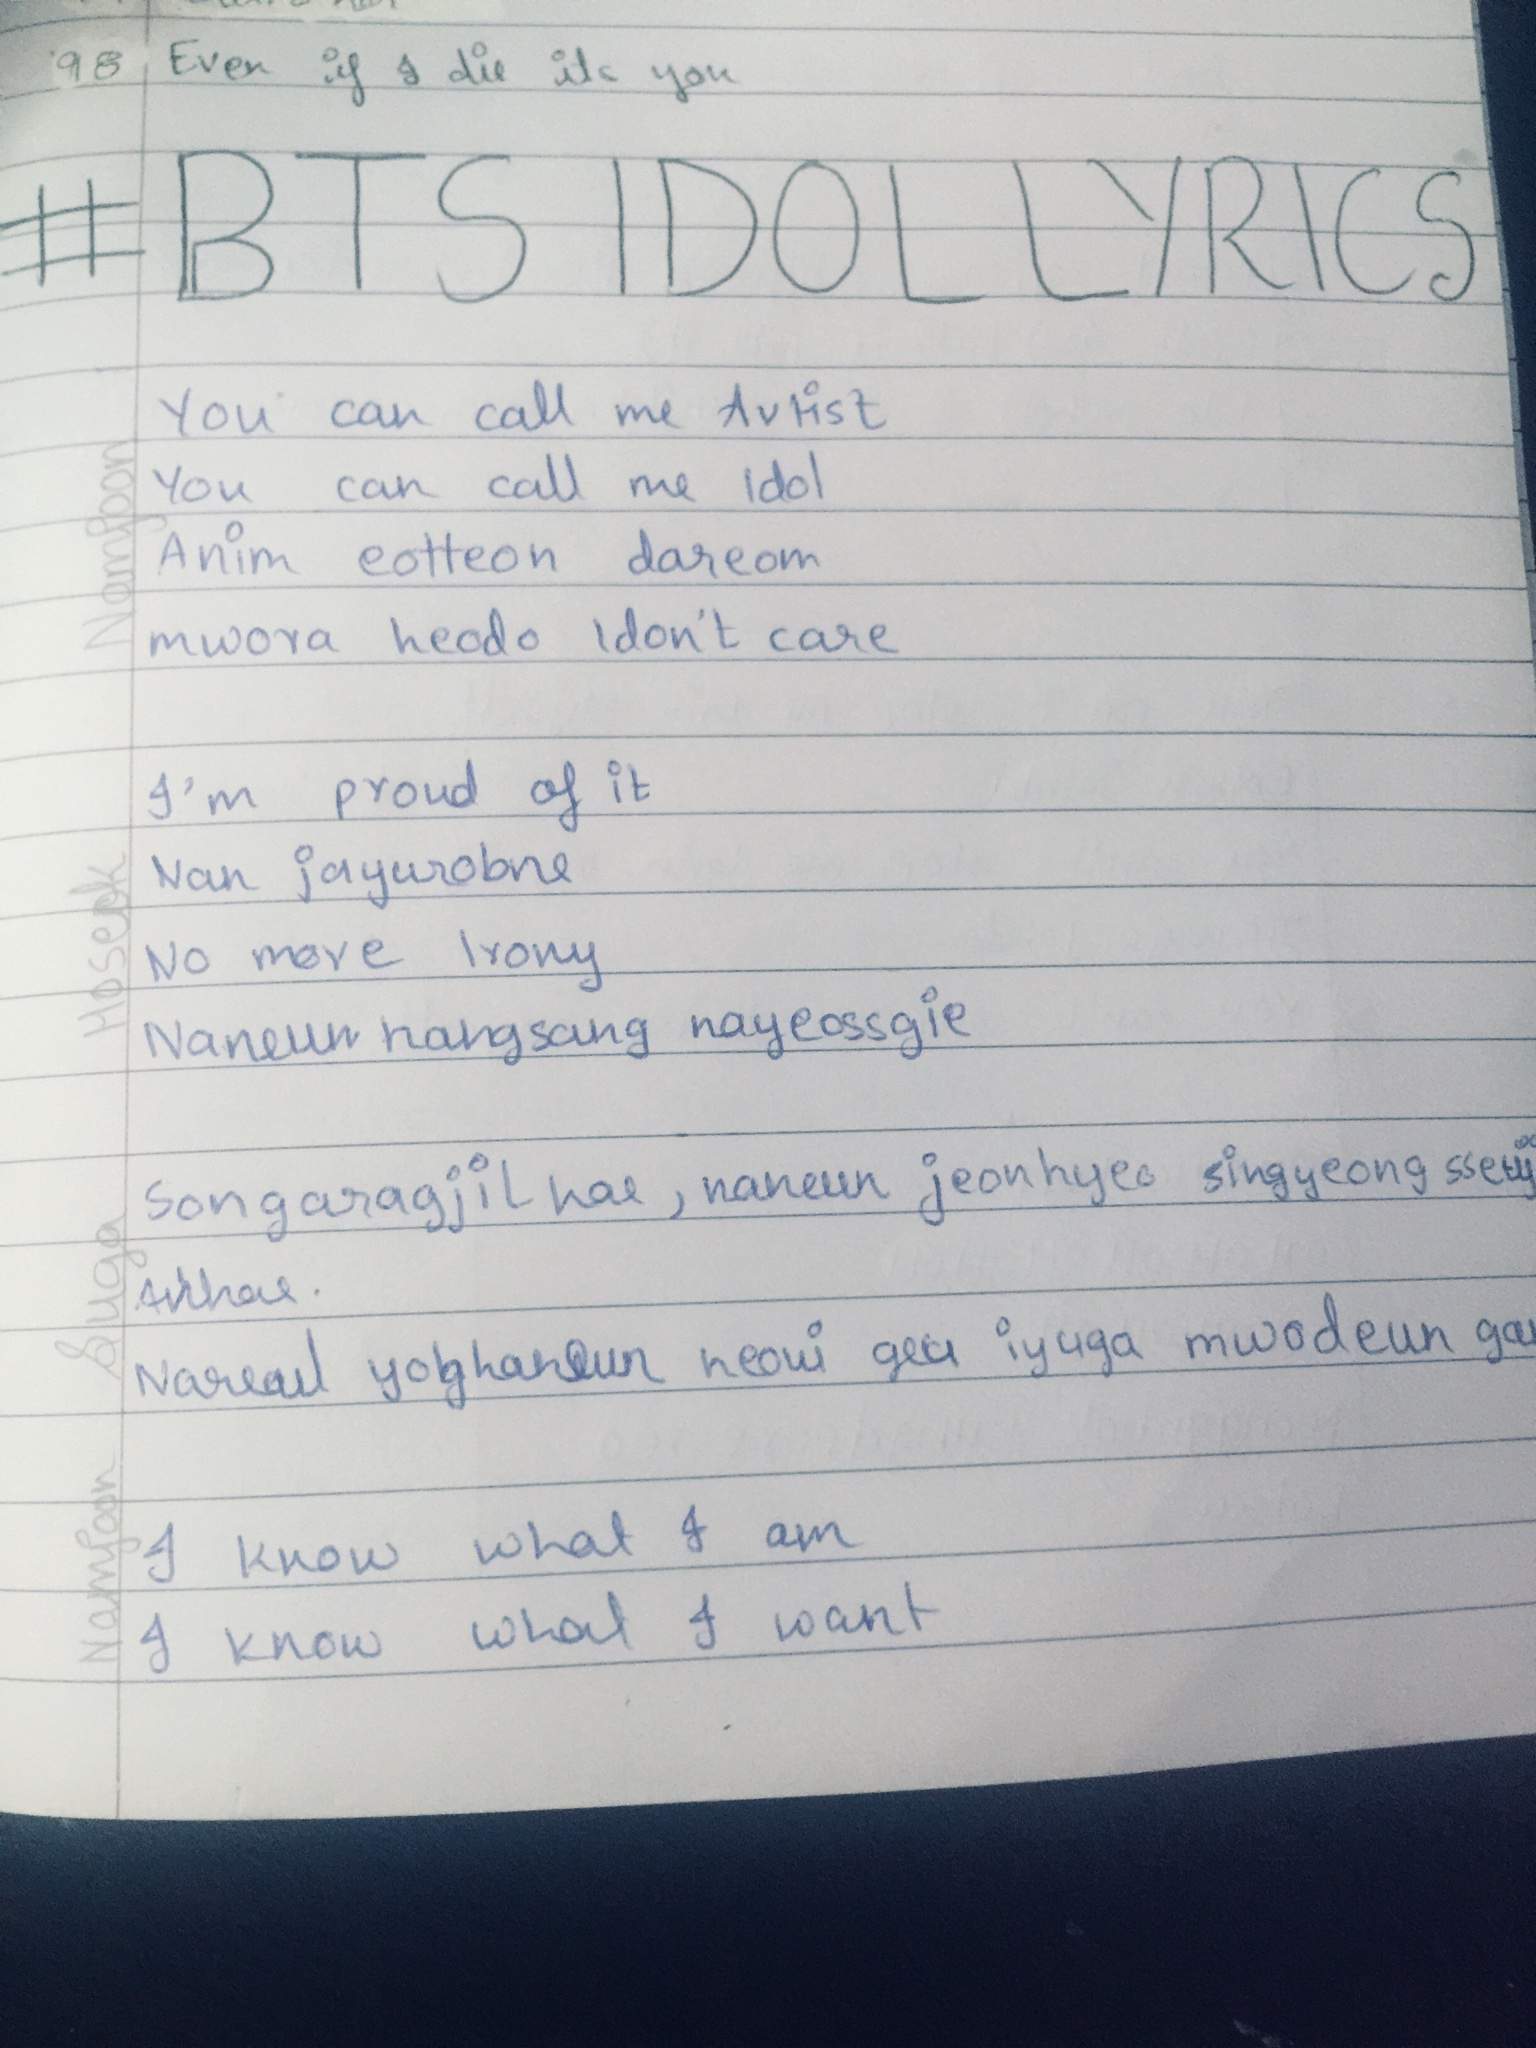 98 Even if I die its you
#BTS IDOL LYRICS
Namjoon
You can call me Artist
You can call me idol
Anim eotteon dareom
mwora heodo I don't care
Hoseok
I'm proud of it
Nan jayurobne
No more Irony
Naneun hangsang nayeossgie
Suga
Songaragjil hae, naneun jeonhyeo singyeong
Nareaul yoghaneun neoui geu iyuga mwodeun
Namjoon
I know what I am
I know what I want